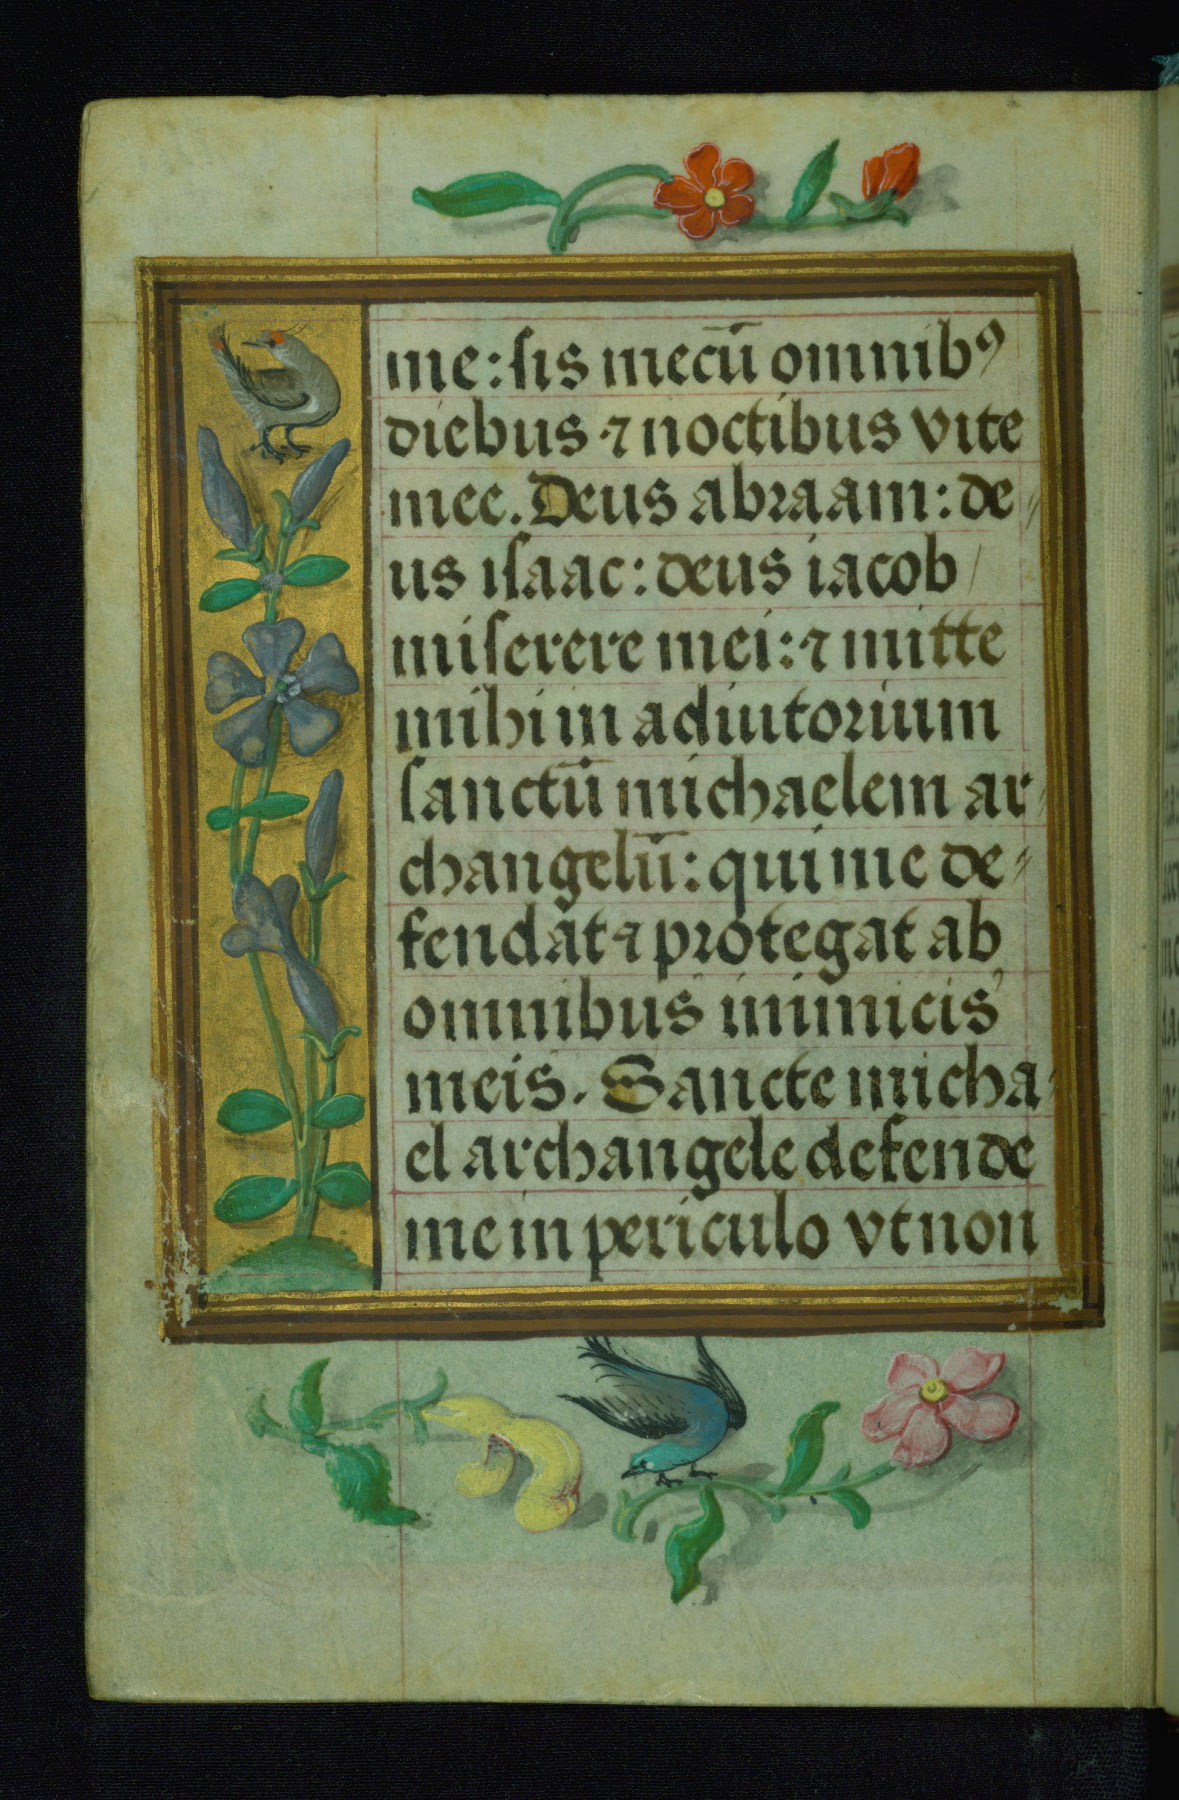 me: sis mecū omnibꝰ
diebus ⁊ noctibus vite
mee. Deus abraam: de〃
us isaac: deus iacob/
miserere mei: ⁊ mitte
mihi in adiutorium
sanctū michaelem ar〃
changelū: qui me de〃
fendat ⁊ protegat ab
omnibus inimicis
meis. Sancte micha〃
el archangele defende
me in periculo vt non